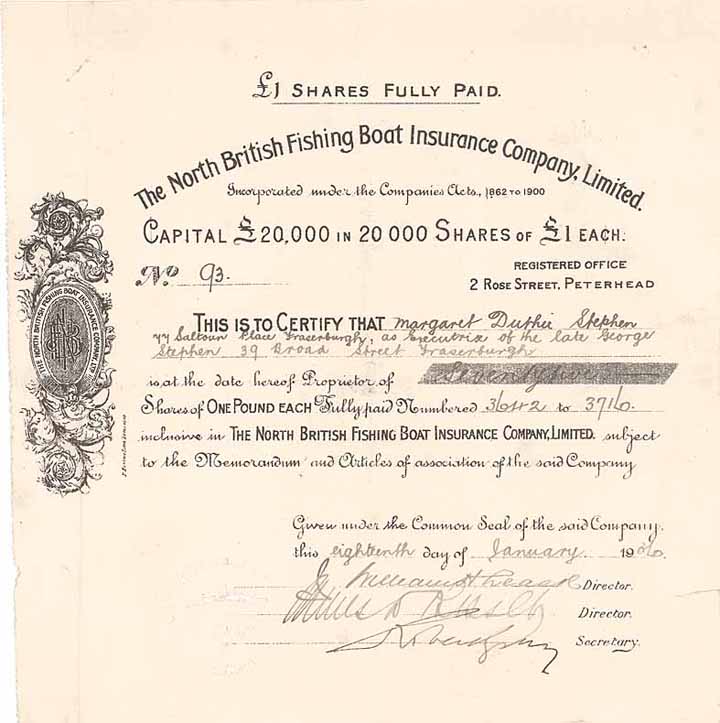 £1 SHARES FULLY PAID.
The North British Fishing Boat Insurance Company, Limited.
Incorporated under the Companies Acts, 1862 to 1900
CAPITAL £20,000 IN 20 000 SHARES OF £1 EACH.
No. 93.
REGISTERED OFFICE
2 ROSE STREET, PETERHEAD
THIS IS TO CERTIFY THAT Margaret Duthie Stephen
77 Saltoun Place Fraserburgh, as Executrix of the late George
Stephen 39 Broad Street Fraserburgh
is at the date hereof Proprietor of Seventyfive
Shares of ONE POUND EACH Fully paid Numbered 3642 to 3716.
inclusive in THE NORTH BRITISH FISHING BOAT INSURANCE COMPANY, LIMITED. subject
to the Memorandum and Articles of association of the said Company
Given under the Common Seal of the said Company.
this eighteenth day of January 19
Director.
Director.
Secretary.
THE NORTH BRITISH FISHING BOAT INSURANCE COMPANY LTD